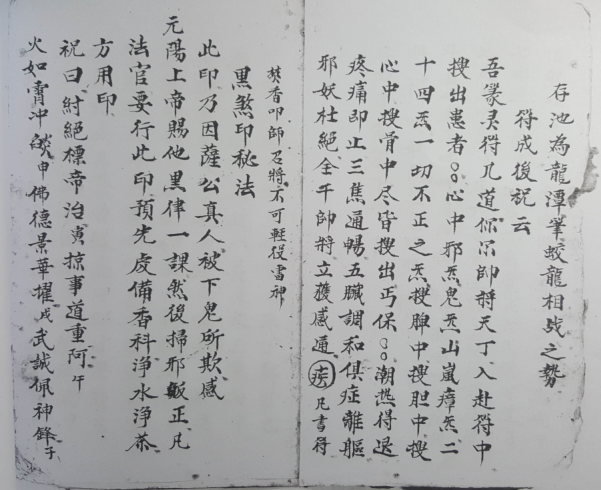 存池為龍潭筆蛟龍相战之勢
符成後祝云
吾篆灵符几道仰师帅将天丁入赴符中
搜出患者○○心中邪炁鬼炁山嵐瘴炁二
十四炁一切不正之炁搜脾中搜胆中搜
心中搜骨中尽皆搜出丐保○○潮热得退
疼痛即止三焦通暢五臟調和俱症離軀
邪妖杜絕全干帥将立獲感通疾凡書符
焚香叩師召將不可輕役雷神
黑煞印秘法
此印乃因薩公真人被下鬼所欺感
元陽上帝賜他黑律一課然後掃邪皈正凡
法官要行此印預先處備香科浄水浄茶
方用印
祝曰紂絕標帝治寅掠事道重阿午
火如霄冲申佛德景華擢戌武誠佩神鋒子